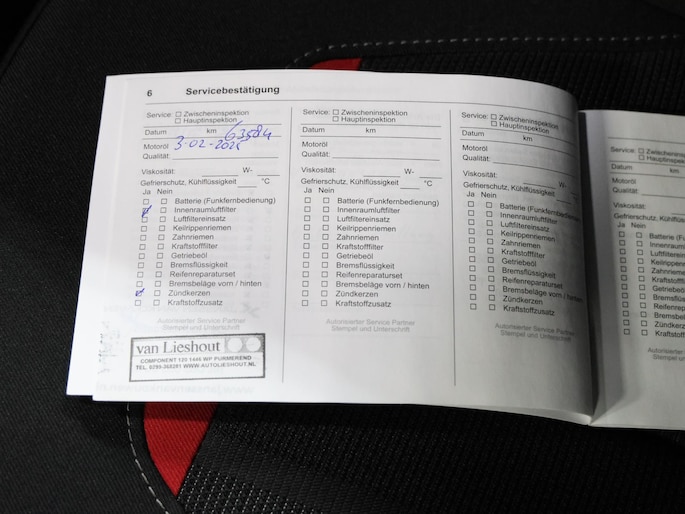 6 Servicebestätigung
Service: Zwischeninspektion
Hauptinspektion
Datum km 63584
Motoröl 3-02-2025
Qualität:
Viskosität: W-
Gefrierschutz, Kühlflüssigkeit °C
Ja Nein
Batterie (Funkfernbedienung)
Innenraumluftfilter
Luftfiltereinsatz
Keilrippenriemen
Zahnriemen
Kraftstofffilter
Getriebeöl
Bremsflüssigkeit
Reifenreparaturset
Bremsbeläge vorn / hinten
Zündkerzen
Kraftstoffzusatz
Autorisierter Service Partner
Stempel und Unterschrift
van Lieshout
COMPONENT 120 1446 WP PURMEREND
TEL. 0299-368281 WWW.AUTOLIESHOUT.NL
Service: Zwischeninspektion
Hauptinspektion
Datum km
Motoröl
Qualität:
Viskosität: W-
Gefrierschutz, Kühlflüssigkeit °C
Ja Nein
Batterie (Funkfernbedienung)
Innenraumluftfilter
Luftfiltereinsatz
Keilrippenriemen
Zahnriemen
Kraftstofffilter
Getriebeöl
Bremsflüssigkeit
Reifenreparaturset
Bremsbeläge vorn / hinten
Zündkerzen
Kraftstoffzusatz
Autorisierter Service Partner
Stempel und Unterschrift
Service: Zwischeninspektion
Hauptinspektion
Datum km
Motoröl
Qualität:
Viskosität: W-
Gefrierschutz, Kühlflüssigkeit °C
Ja Nein
Batterie (Funkfernbedienung)
Innenraumluftfilter
Luftfiltereinsatz
Keilrippenriemen
Zahnriemen
Kraftstofffilter
Getriebeöl
Bremsflüssigkeit
Reifenreparaturset
Bremsbeläge vorn / hinten
Zündkerzen
Kraftstoffzusatz
Autorisierter Service Partner
Stempel und Unterschrift
Service: Zwischeninspektion
Hauptinspektion
Datum km
Motoröl
Qualität:
Viskosität:
Gefrierschutz, Kühlflüssig
Ja Nein
Batterie (Fu
Innenraumlu
Luftfilterein
Keilrippenri
Zahnriemen
Kraftstofffil
Getriebeöl
Bremsflüssi
Reifenrepar
Bremsbeläg
Zündkerzen
Kraftstoffzu
Autorisierter Se
Stempel und